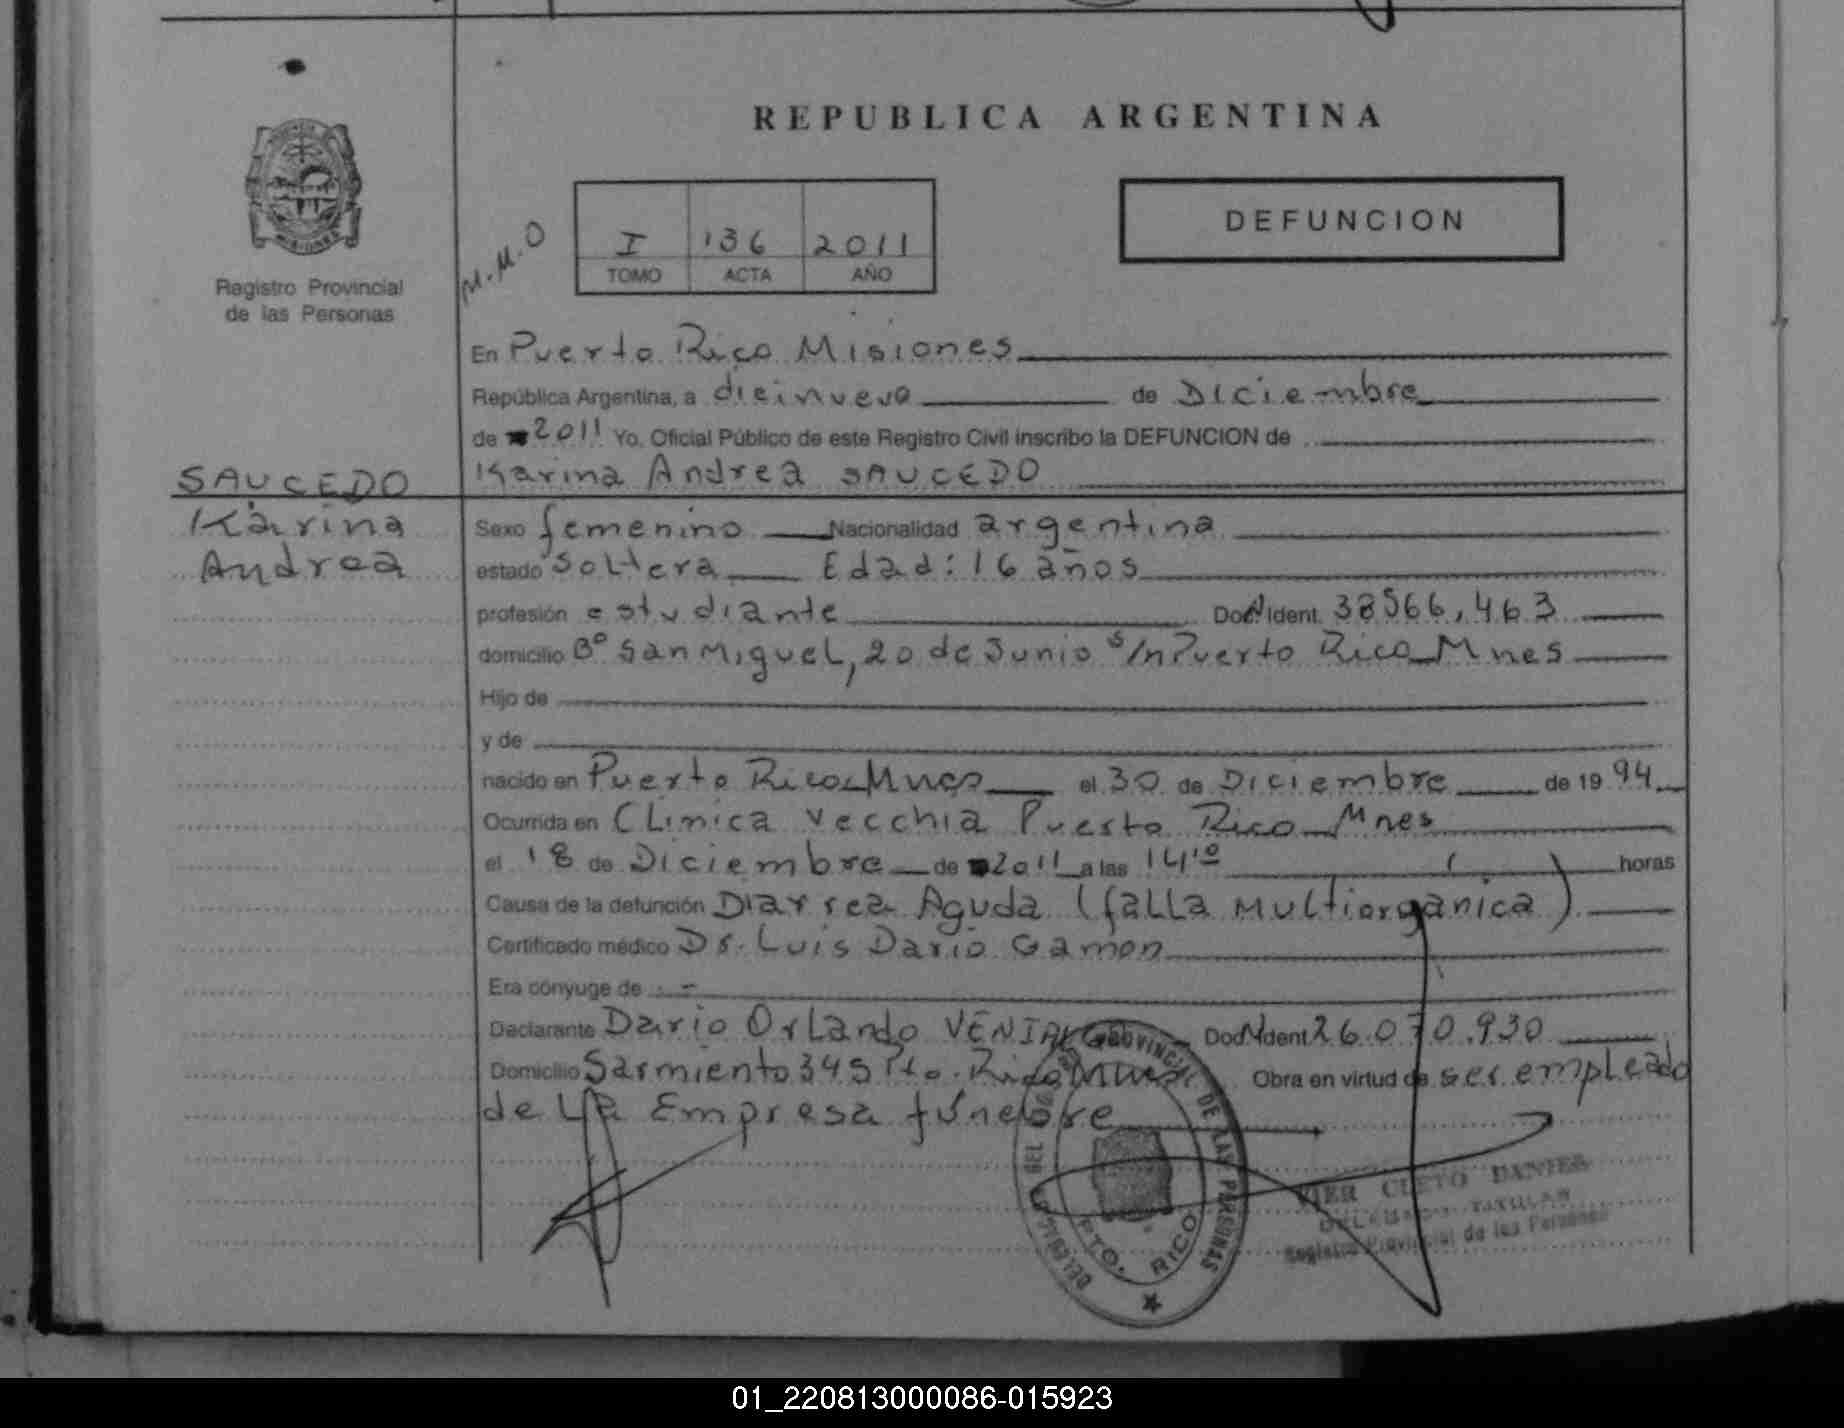 REPUBLICA ARGENTINA
DEFUNCION
M.M.O
I 136 2011
TOMO ACTA AÑO
MISIONES
Registro Provincial
de las Personas
SAUCEDO
Karina
Andrea
En Puerto Rico Misiones
República Argentina, a dieinueve de Diciembre
de 2011 Yo, Oficial Público de este Registro Civil inscribo la DEFUNCION de
Karina Andrea SAUCEDO
Sexo femenino Nacionalidad argentina
estado soltera Edad: 16 años
profesión estudiante Doc N° Ident. 38566,463
domicilio B° San Miguel, 20 de Junio s/n Puerto Rico Mnes
Hijo de
y de
nacido en Puerto Rico Mnes el 30 de Diciembre de 1994
Ocurrida en Clinica Vecchia Puerto Rico Mnes
el 18 de Diciembre de 2011 a las 14,10 horas
Causa de la defunción Diarrea Aguda (falla multiorganica)
Certificado médico Dr. Luis Dario Gamon
Era cónyuge de -
Declarante Dario Orlando Doc N Ident 26.070.930
Domicilio Sarmiento 345 Pto. Rico Mnes Obra en virtud de ser empleado
de la Empresa fúnebre
PROVINCIAL DE LAS PERSONAS
PTO. RICO
CUETO
TITULAR
Registro Provincial de las Personas
01_220813000086-015923